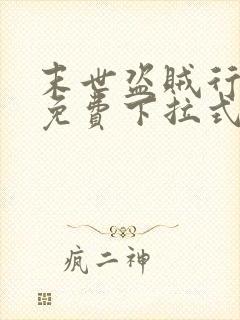 末世盗贼行
免费下拉式
疯二神